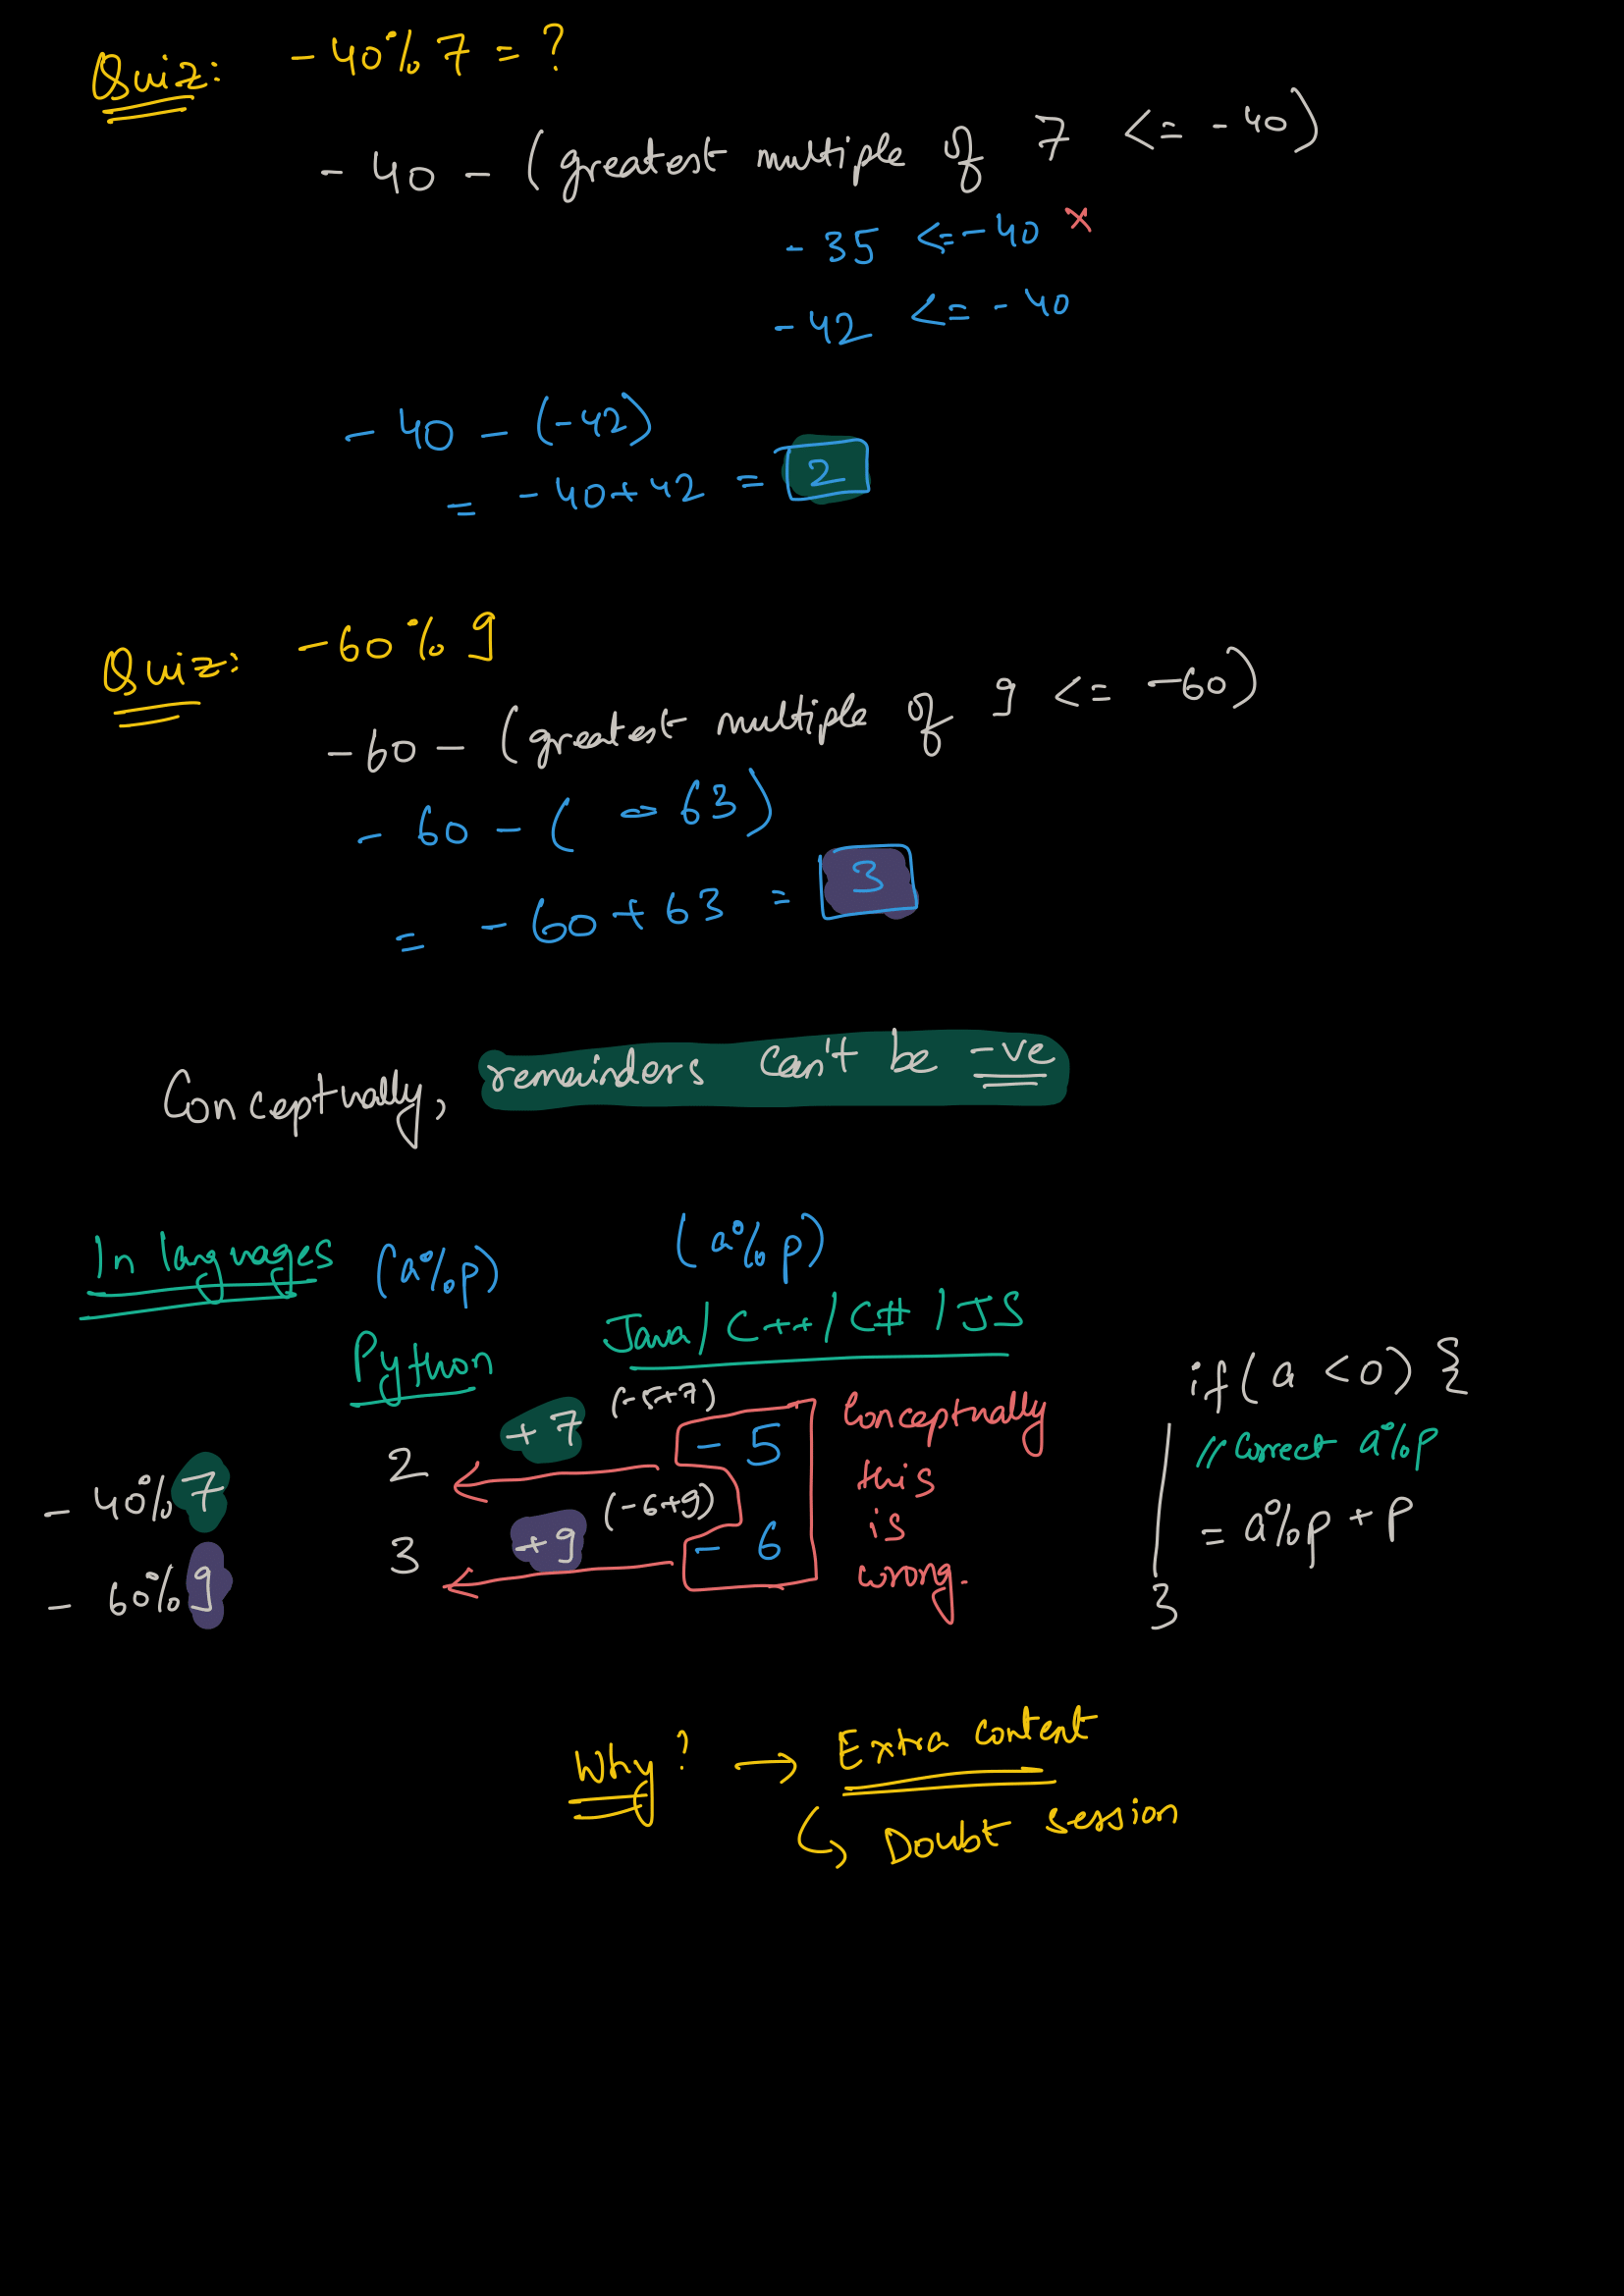 Quiz: -40%7 = ?
-40 - (greatest multiple of 7 <= -40)
-35 <= -40 x
-42 <= -40
-40 - (-42)
= -40+42 = 2
Quiz: -60%9
-60 - (greatest multiple of 9 <= -60)
-60 - ( -63)
= -60+63 = 3
Conceptually, remainders can't be -ve
In languages (a%p) (a%p)
Python Java/C++/C#/JS
-40%7 2 +7 (-5+7) -5
-60%9 3 +9 (-6+9) -6
Conceptually
this
is
wrong.
if(a <0) {
// Correct a%p
= a%p + p
}
Why? → Extra content
↳ Doubt session